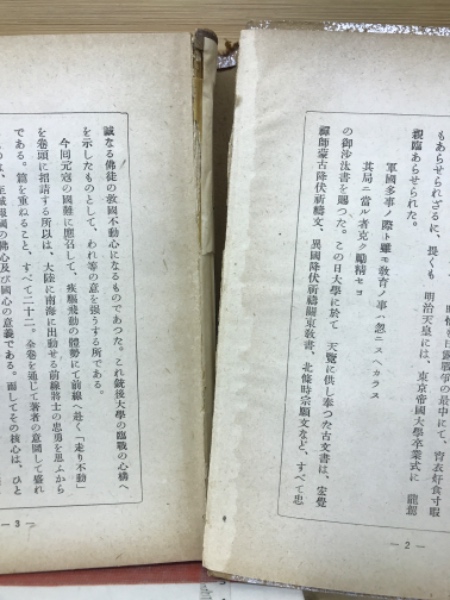 時恰も日露戰爭の最中にて、宵衣旰食寸暇
もあらせられざるに、畏くも　明治天皇には、東京帝國大學卒業式に　龍駕
親臨あらせられた。
軍國多事ノ際ト雖モ教育ノ事ハ忽ニスヘカラス
其局ニ當ル者克ク勵精セヨ
の御沙汰書を賜つた。この日大學に於て　天覽に供し奉つた古文書は、宏覺
禪師蒙古降伏祈禱文、異國降伏祈禱關東敎書、北條時宗願文など、すべて忠
— 2 —
誠なる佛徒の救國不動心になるものであつた。これ銃後大學の臨戰の心構へ
を示したものとして、われ等の意を强うする所である。
今回元寇の國難に應召して、疾驅飛動の體勢にて前線へ赴く「走り不動」
を卷頭に招請する所以は、大陸に南海に出動せる前線將士の忠勇を思ふから
である。篇を重ねること、すべて二十二。全卷を通じて著者の意圖して盛れ
るのは、至誠報國の佛心及び國心の意義である。而してその核心は、ひと
— 3 —